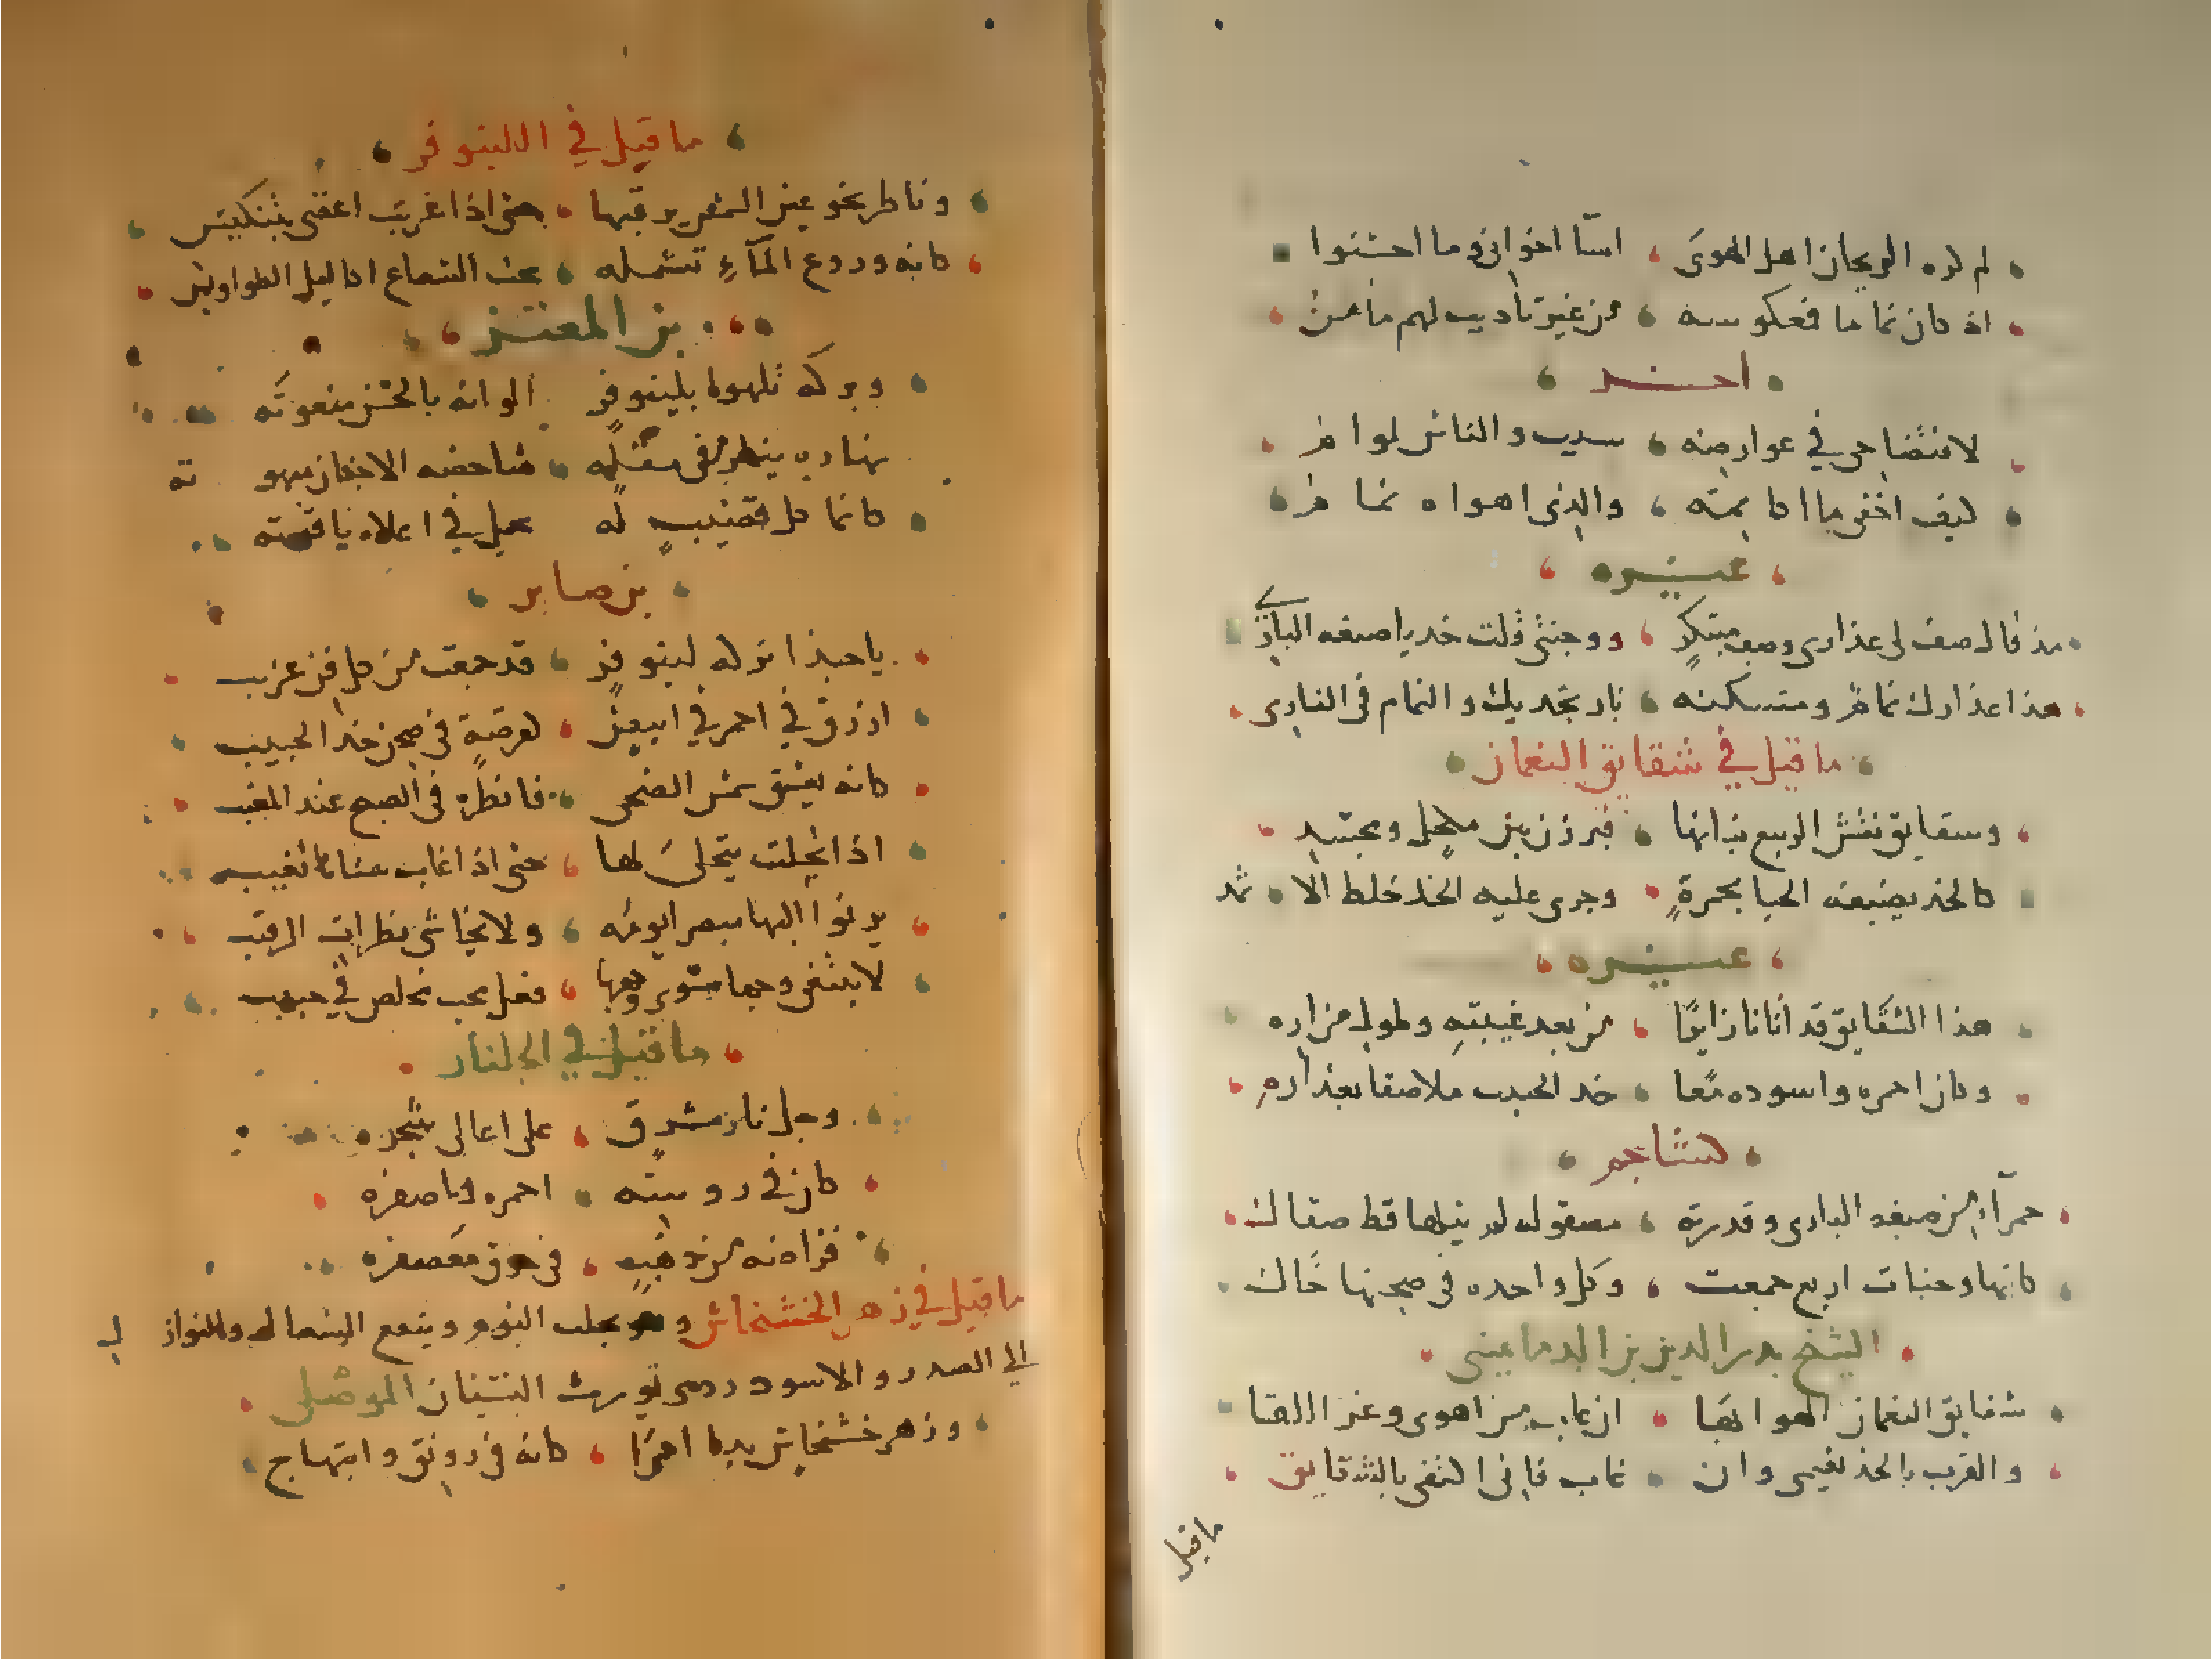 لم كره الريحان اهل الهوى اسا اخواني وما احسنوا
اذ كان نماما فعكوسه من غير تاديب لهم مامن
اخر
لافتضاحي في عوارضه سبب والناس لوام
كيف اخفي ما اكاتمه والذي اهواه نمام
غيره
مذ قال صف لي عذاري وصف مبتكر ووجنتي قلت خد يا صنعة الباري
هذا عذارك نمام ومسكنه نار بخديك والنمام في النار
ما قيل في شقايق النعمان
وشقايق نقش الربيع بنانها فبرزن بين مكحل ومجسد
كالخد يصبغه الحيا بحمرة وجرى عليه الخد خلط الاثمد
غيره
هذا الشقايق قد اتانا زايرا من بعد غيبته وطول مزاره
وكان احمره واسوده معا خد الحبيب ملاصقا بعذاره
كشاجم
حمراء من صبغة الباري وقدرته مصقوله لم ينلها قط صقال
كانها وجنات اربع جمعت وكل واحده في صحنها خال
الشيخ بدر الدين بن الدماميني
شقايق النعمان الهوا بها ان غاب من اهوى وعز اللقا
والقرب بالخد نعيمي وان غاب فاني اكتفي بالشقايق
ما قيل
ما قيل في اللينوفر
وناظر نحو عين الشمس يرقبها حتى اذا غربت اغفى بتنكيس
كانه ودروع الماء تشمله تحت الشعاع اكاليل الطواويس
بن المعتز
وبركه تلهوا بلينوفر الوانه بالحسن منعوته
نهاره ينظر من مقله شاخصه الاجفان مبهوته
كانما كل قضيب له يحمل في اعلاه ياقوته
بن صابر
يا حبذا بركه لينوفر قد جمعت من كل فن غريب
ازرق في احمر في ابيض كقرصة في صحن خد الحبيب
كانه يعشق شمس الضحى فانظره في الصبح عند المغيب
اذا تجلت يتجلى لها حتى اذا غاب سناها تغيب
يرنوا اليها مبصرا يومه ولا يخاشى نظرات الرقيب
لا يبتغي وجها سوى وجهها فعل محب مخلص في حبيب
ما قيل في الجلنار
وجلنار مشرق على اعالي شجره
كان في روسه احمره واصفره
قراضه من ذهب في خرق معصفره
ما قيل في زهر الخشخاش وهو يجلب النوم وينفع السعال والنوازل
الى الصدر والاسود ردى يورث النسيان الموصلي
وزهر خشخاش بدا احمرا كانه في رونق وابتهاج